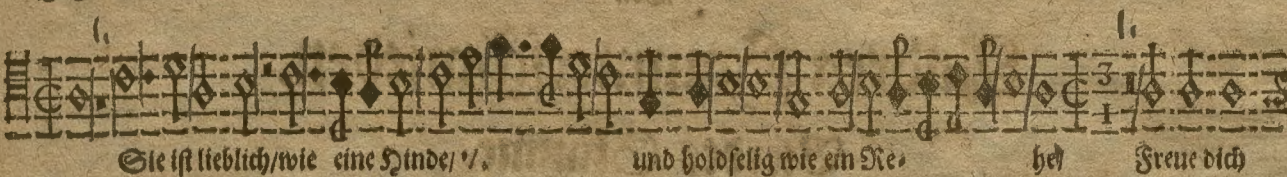 1. 1.
3
1
Sie ist lieblich/wie eine Hinde/ ·/. und holdselig wie ein Re- he/ Freue dich